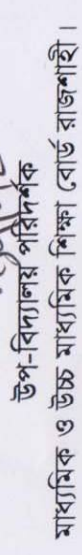 উপ-বিদ্যালয় পরিদর্শক
মাধ্যমিক ও উচ্চ মাধ্যমিক শিক্ষা বোর্ড রাজশাহী।